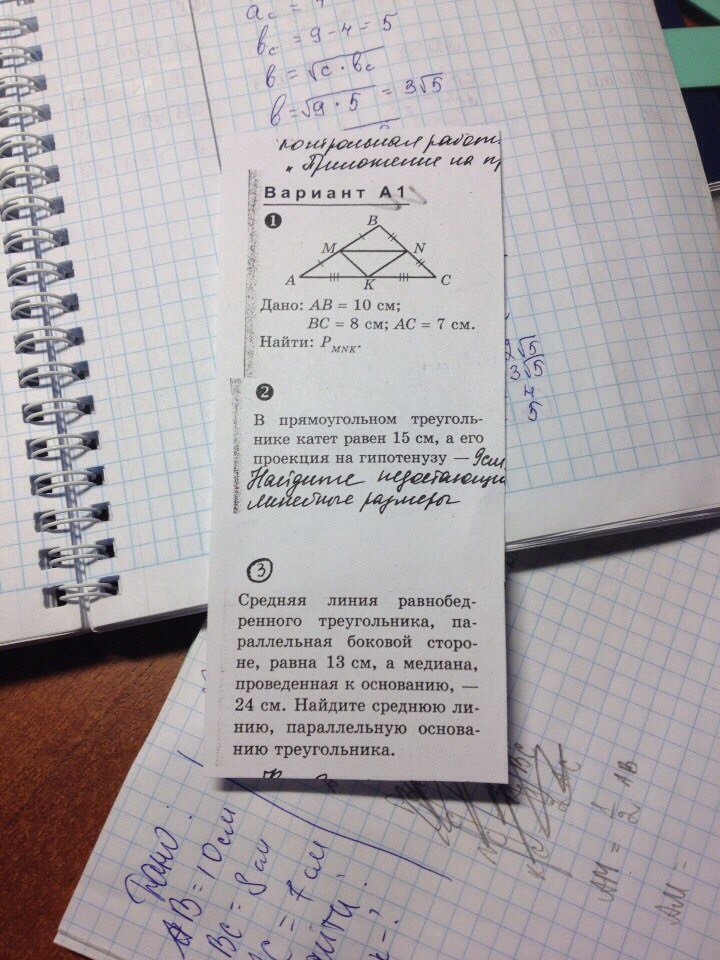 b_c = 9 - 4 = 5
b = √c · b_c
b = √9 · 5 = 3√5
контрольная работ
"Приложение на пр
Вариант А1
1
B
M N
A K C
Дано: AB = 10 см;
BC = 8 см; AC = 7 см.
Найти: P_MNK.
2
В прямоугольном треуголь-
нике катет равен 15 см, а его
проекция на гипотенузу — 9см.
Найдите недостающи
линейные размеры
3
Средняя линия равнобед-
ренного треугольника, па-
раллельная боковой сторо-
не, равна 13 см, а медиана,
проведенная к основанию, —
24 см. Найдите среднюю ли-
нию, параллельную основа-
нию треугольника.
2√5
3√5
5
Дано:
AB = 10 см
BC = 8 см
C = 7 см
йти:
- ?
AM = 1/2 AB
AM =